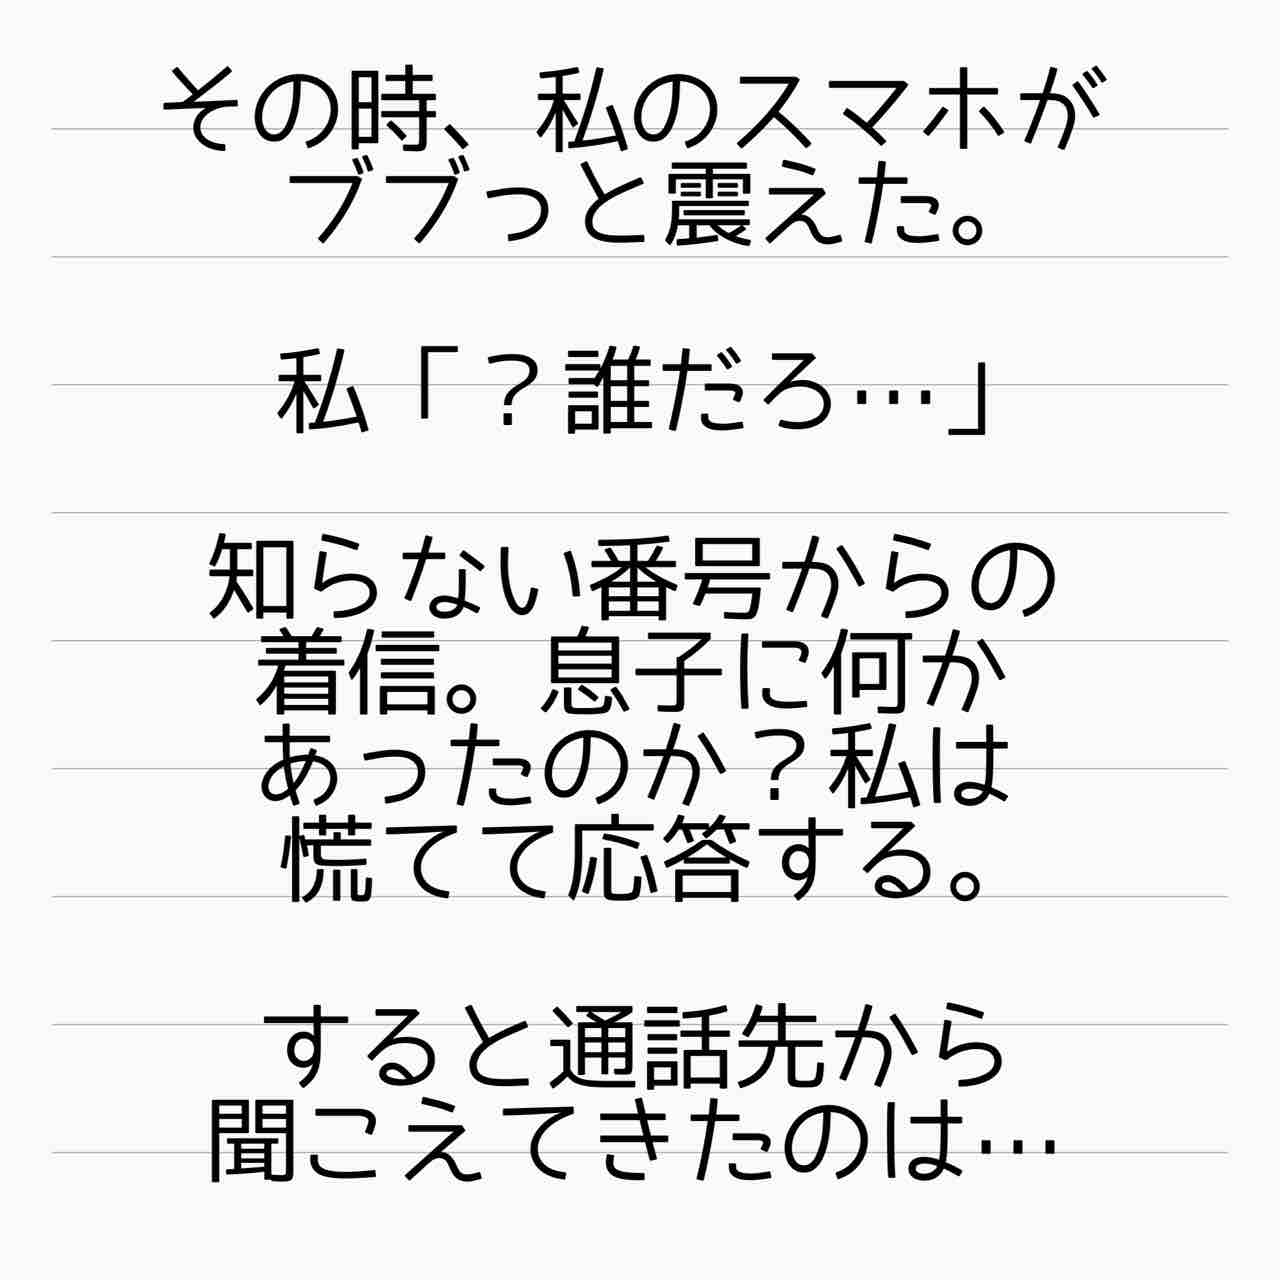 その時、私のスマホが
ブブっと震えた。
私「？誰だろ…」
知らない番号からの
着信。息子に何か
あったのか？私は
慌てて応答する。
すると通話先から
聞こえてきたのは…